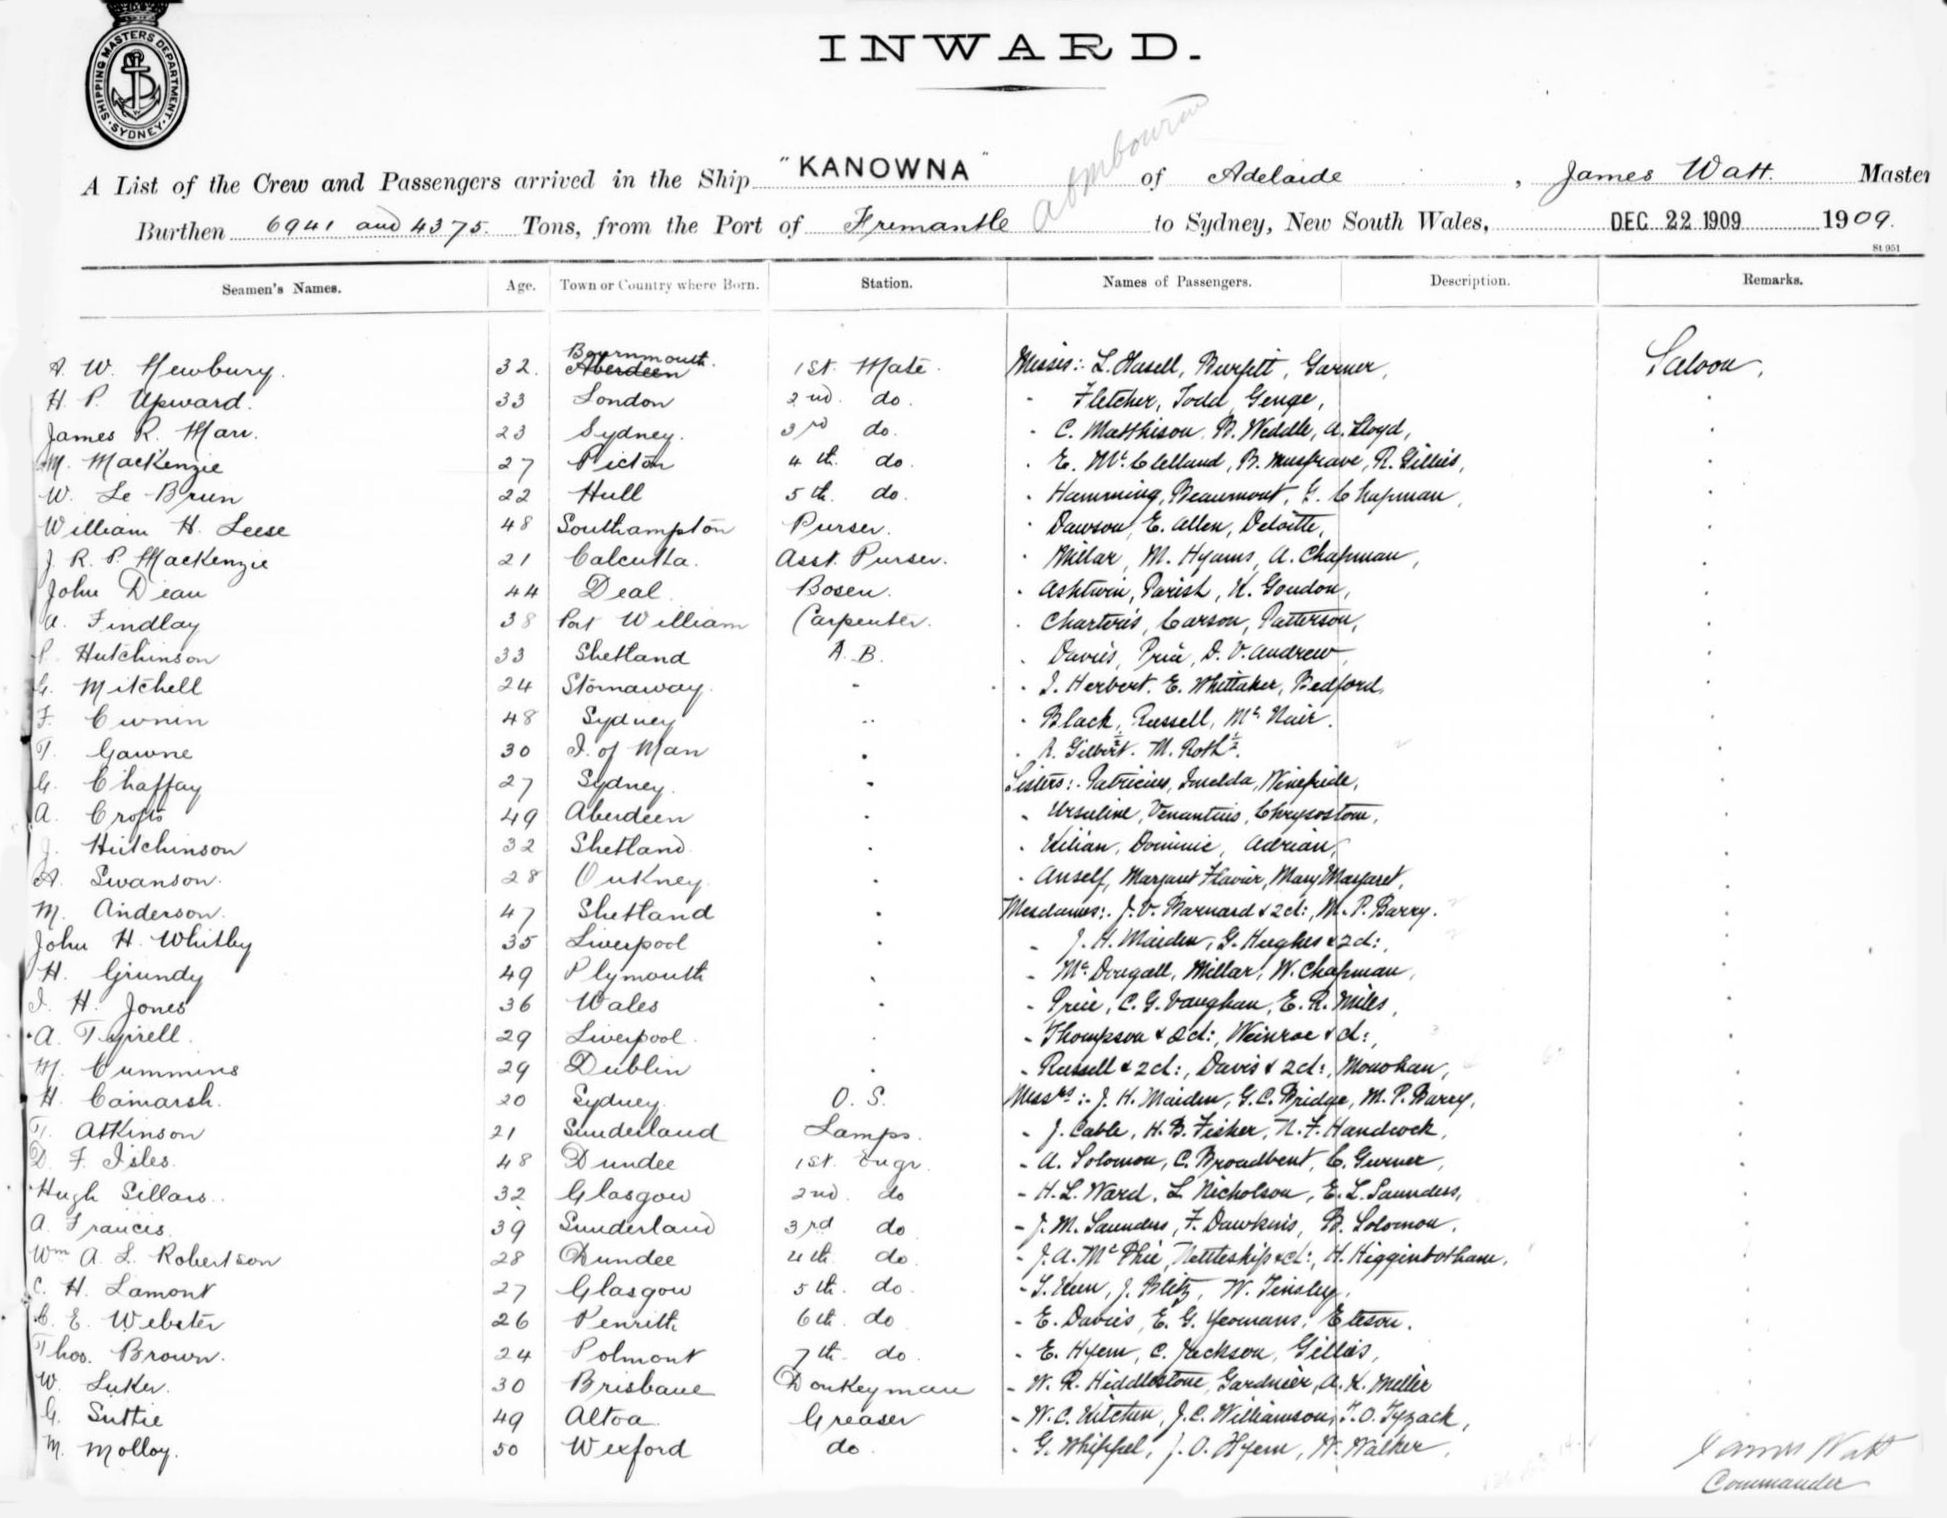 SHIPPING MASTERS DEPARTMENT. SYDNEY.
INWARD.
A List of the Crew and Passengers arrived in the Ship "KANOWNA" of Adelaide, James Watt. Master
Burthen 6941 and 4375. Tons, from the Port of Fremantle to Sydney, New South Wales, DEC 22 1909 1909.
St 951
Seamen's Names. Age. Town or Country where Born. Station. Names of Passengers. Description. Remarks.
A. W. Newbury. 32. Aberdeen Bournmouth. 1st Mate. Misses:. L. Hasell, Burfitt, Garner, Saloon.
H. P. Upward. 33 London 2nd. do. - Fletcher, Todd, Genge,
James R. Marr. 23 Sydney. 3rd do. - C. Matthison. B. Weddle, A. Lloyd,
M. MacKenzie 27 Picton 4th do. - E. McClelland, B. Musgrave, R. Gillies,
W. Le Brun 22 Hull 5th. do. - Hamming, Beaumont, G. Chapman,
William H. Leese 48 Southampton Purser. - Dawson, E. Allen, Deloitte,
J. R. P. MacKenzie 21 Calcutta. Asst. Purser. - Millar, M. Hyams, A. Chapman,
John Dean 44 Deal. Bosen. - Ashtwin, Parish, K. Goudon,
A. Findlay 38 Port William Carpenter. - Charteris, Carson, Patterson,
P. Hutchinson 33 Shetland A. B. - Davies, Price, D. V. Andrew,
G. Mitchell 24 Stornaway. - - I. Herbert. E. Whittaker, Bedford,
F. 48 Sydney - - Black, Russell, McNair.
T. Gawne 30 I. of Man - - A. Gilbert ½. M. Roth ½.
G. Chaffay 27 Sydney. - Sisters:. Patricius, Imelda, Winefride,
A. Crofts 49 Aberdeen - - Ursuline, Venantius, Chrysostom,
J. Hutchinson 32 Shetland - - Kilian, Dominic, Adrian,
A. Swanson. 28 Orkney. - - Anself, Margaret Flavier, Mary Margaret,
M. Anderson. 47 Shetland - Mesdames:. J. V. Barnard & 2 ch:, M. P. Barry.
John H. Whitby 35 Liverpool - - J. H. Maiden, G. Hughes & 2 ch:,
H. Grundy 49 Plymouth - - McDougall, Millar, W. Chapman,
I. H. Jones 36 Wales - - Price, C. G. Vaughan, E. R. Miles,
A. Tyrrell. 29 Liverpool. - - Thompson & 2 ch:, Weinroe & ch:,
M. Cummins 29 Dublin - - Russell & 2 ch:, Davis & 2 ch:, Monohan,
H. Camarsh. 20 Sydney. O. S. Messrs:- J. H. Maiden, G. C. Bridge, M. P. Barry,
T. Atkinson 21 Sunderland Lamps. - J. Cable, H. B. Fisher, N. F. Handcock,
D. F. Isles. 48 Dundee 1st. Engr. - A. Solomon, C. Broadbent, C. Gurner,
Hugh Sillars. 32 Glasgow 2nd. do - H. L. Ward, L. Nicholson, E. L. Saunders,
A. Francis. 39 Sunderland 3rd do - J. M. Saunders, F. Dawkins, B. Solomon,
Wm A. L. Robertson 28 Dundee 4th. do. - J. A. McPhie, Nettleship & ch:, H. Higginbotham,
C. H. Lamont 27 Glasgow 5th. do. - T. Keen, J. Blitz, W. Tinsley,
C. E. Webster 26 Penrith 6th. do - E. Davies, E. G. Yeomans, Eteson.
Thos. Brown. 24 Polmont 7th. do. - E. Hyem, C. Jackson, Gillies,
W. Luker. 30 Brisbane Donkeyman - W. R. Hiddlestone, Gardner, A. K. Miller
G. Suttie 49 Altoa. Greaser - W. C. Kitchen, J. C. Williamson, T. O. Tyzack,
M. Molloy. 50 Wexford do. - G. Whippel, J. O. Hyem, W. Walker,
James Watt
Commander